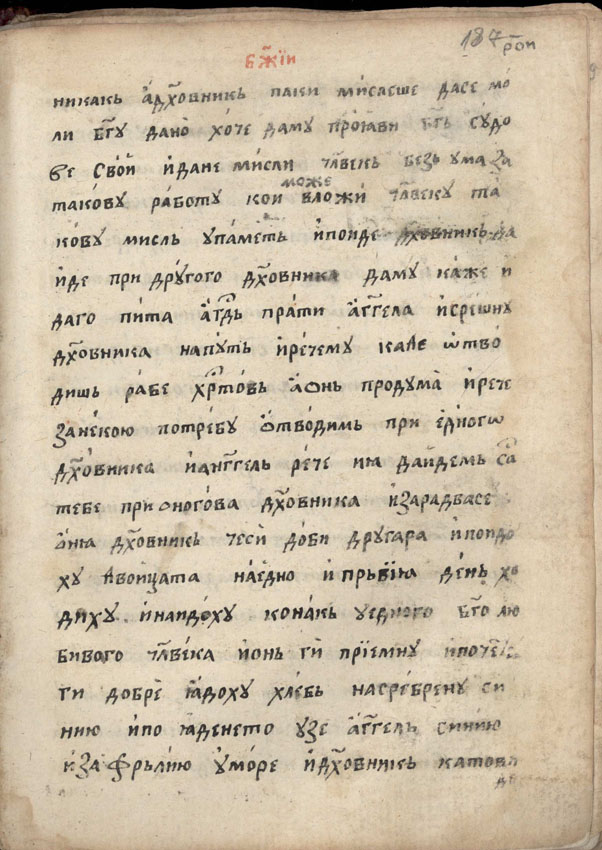 187 рои
бж҃їи
никакь а҆дх҃овникь паки мислеше дасе мо
ли бг҃у дано хо́че даму про҆ꙗви бг҃ь судо
ве свои̂ и҆дане мисли чл҃векь безь ума за
тако́ву ра́боту кои може вложи чл҃веку та
ко́ву мисль упа́меть и҆поиде дх҃овникь да
и҆де при дрꙋ́гого дх҃овника даму ка́же и҆
даго пи́та а҆гд҃ь пра́ти а҆гг҃ела и҆срешну
дх҃овника напу́ть и҆речему каде ѿтво
дишь ра́бе хрт҃овь а҆ѡнь продума и҆рече
зане́кою потре́бу ѿтводимь при е҆дногѡ
дх҃о́вника и҆а҆нгг҃ель ре́че иꙗ да́идемь са
тебе при ѡногова дх҃овника и҆зарадвасе
ѡ҆нꙗ дх҃овникь чеси̂ до́би дрꙋгара и҆поидо
ху двоицата нае҆дно и҆ прьвїꙗ день хо
диху и҆наидо́ху конакь уе҆дного бг҃о лю
бивого чл҃ве́ка и҆онь ги̂ прїемну и҆поче
ги добре̂ ꙗ҆доху хле́бь насре́брену си
нию и҆по ꙗ҆денето узе а҆гг҃ель синию
и҆за фрьлию у҆мо́ре и҆дх҃овникь като вꙗ
де